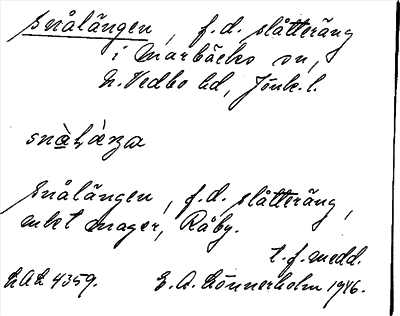 Snålängen, f.d. slåtteräng
i Marbäcks sn,
N. Vedbo hd, Jönk. l.
Snålängen, f.d. slåtteräng,
enkt mager, Råby.
t. f. medd.
LAL 4359. E. A. Lönnerholm 1946.